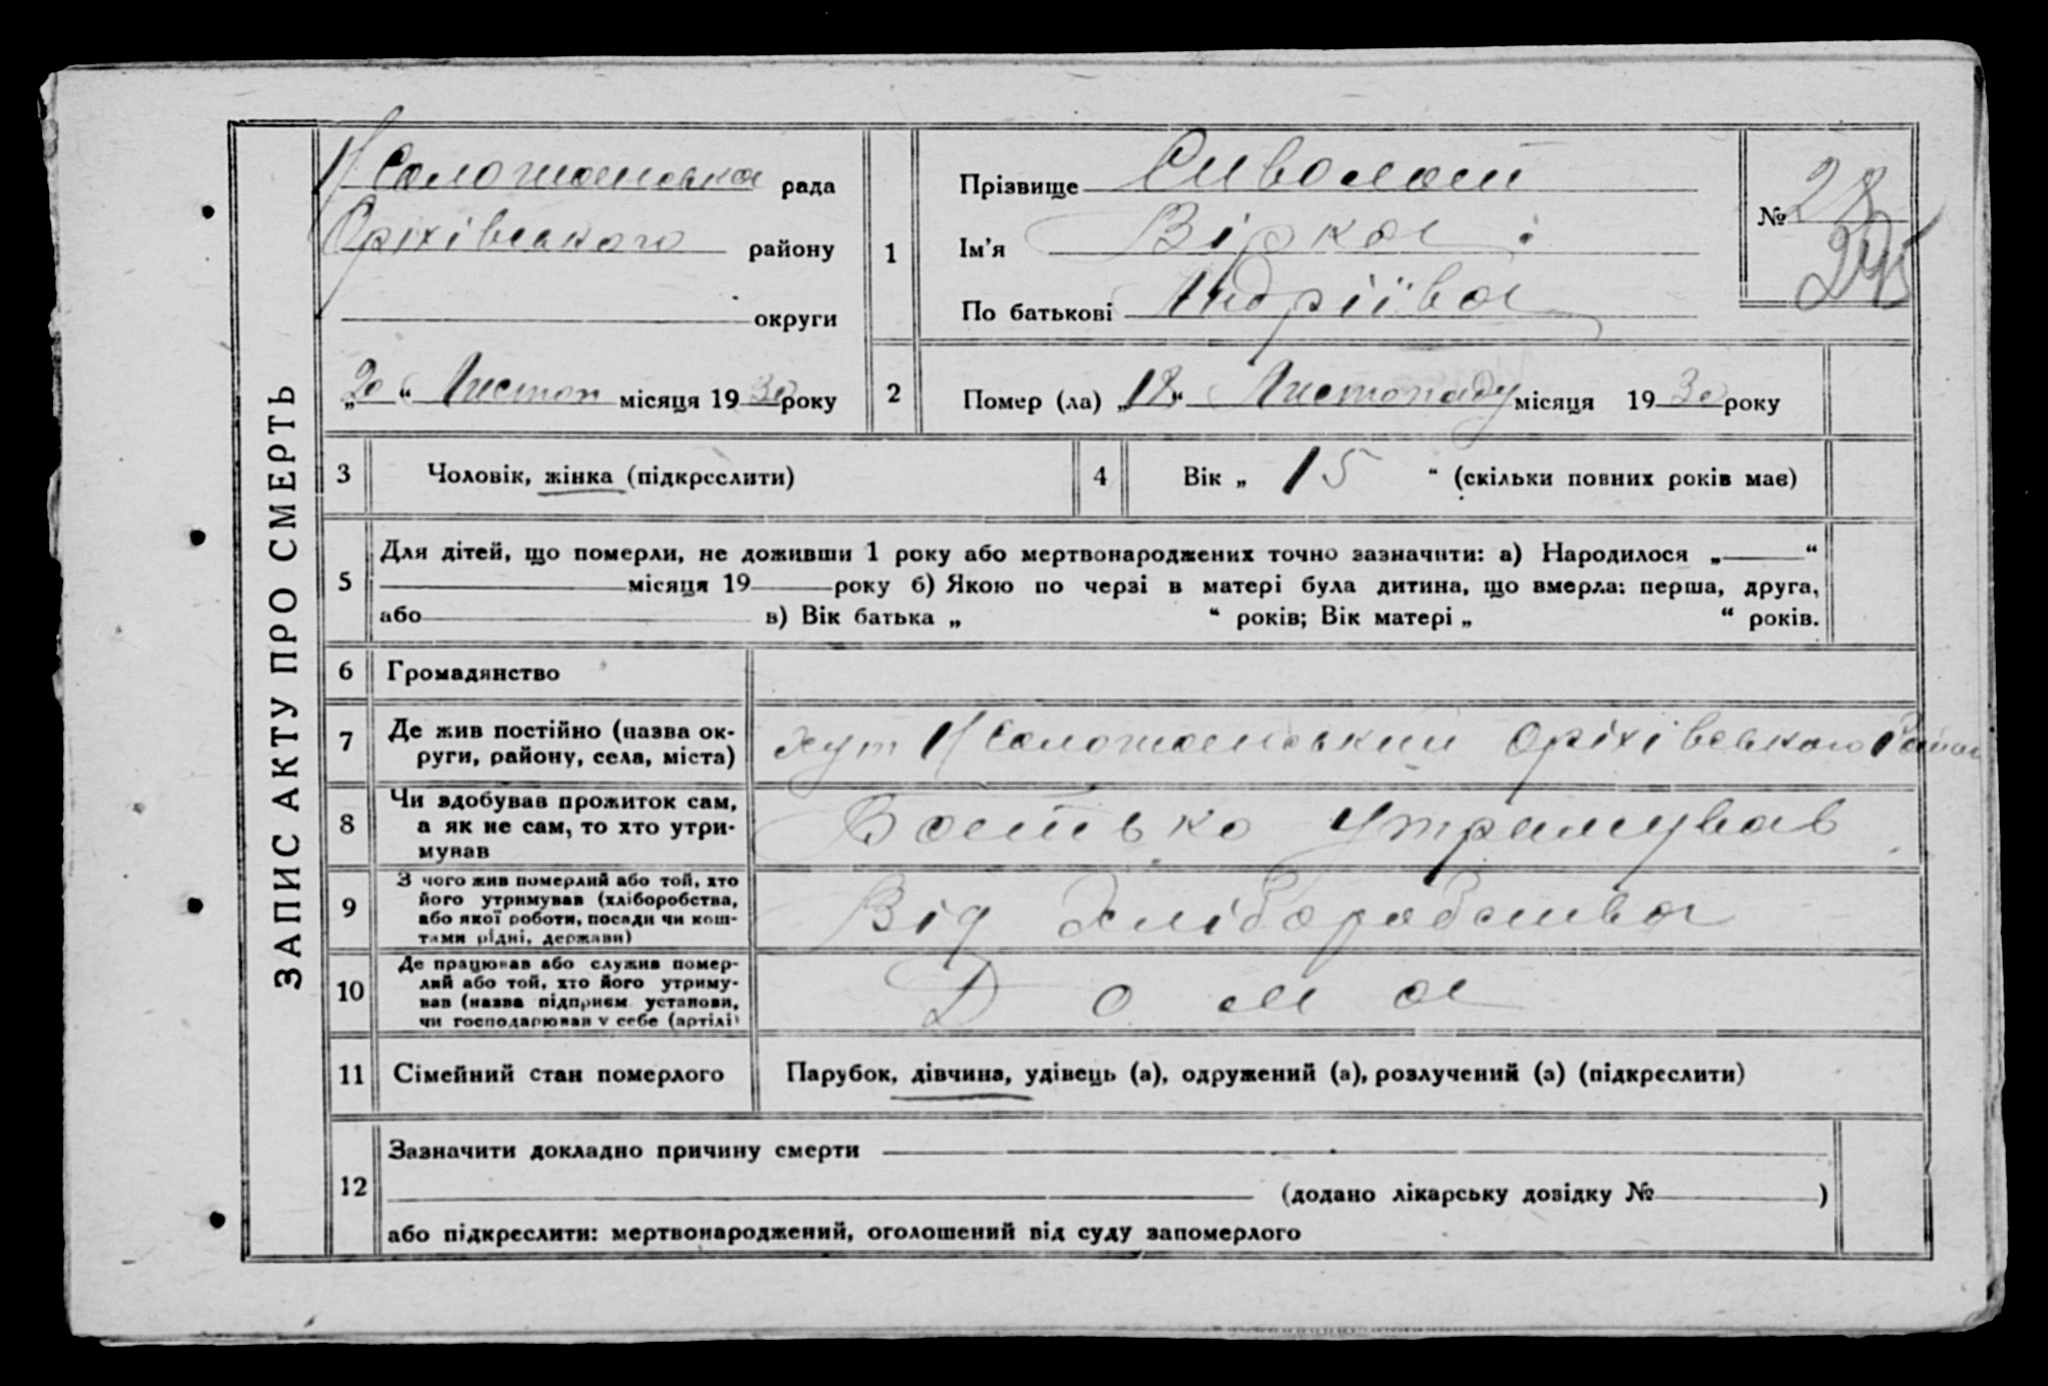 ЗАПИС АКТУ ПРО СМЕРТЬ
рада
Оріхівського району
округи
„20“ Листоп місяця 1930 року
1
Прізвище Сиволап
Ім'я Вірка
По батькові Андріїва
№ 28
2
Помер (ла) „18“ Листопаду місяця 1930 року
3
Чоловік, жінка (підкреслити)
4
Вік „ 15 “ (скільки повних років має)
5
Для дітей, що померли, не доживши 1 року або мертвонароджених точно зазначити: а) Народилося „ “
місяця 19 року б) Якою по черзі в матері була дитина, що вмерла: перша, друга,
або в) Вік батька „ “ років; Вік матері „ “ років.
6
Громадянство
7
Де жив постійно (назва ок-
руги, району, села, міста)
хут Оріхівського
8
Чи здобував прожиток сам,
а як не сам, то хто утри-
мував
Батько утримував
9
З чого жив померлий або той, хто
його утримував (хліборобства,
або якої роботи, посади чи кош-
тами рідні, держави)
Від хліборобства
10
Де працював або служив помер-
лий або той, хто його утриму-
вав (назва підприєм. установи,
чи господарював у себе (артілі)
Дома
11
Сімейний стан померлого
Парубок, дівчина, удівець (а), одружений (а), розлучений (а) (підкреслити)
12
Зазначити докладно причину смерти
(додано лікарську довідку № )
або підкреслити: мертвонароджений, оголошений від суду запомерлого